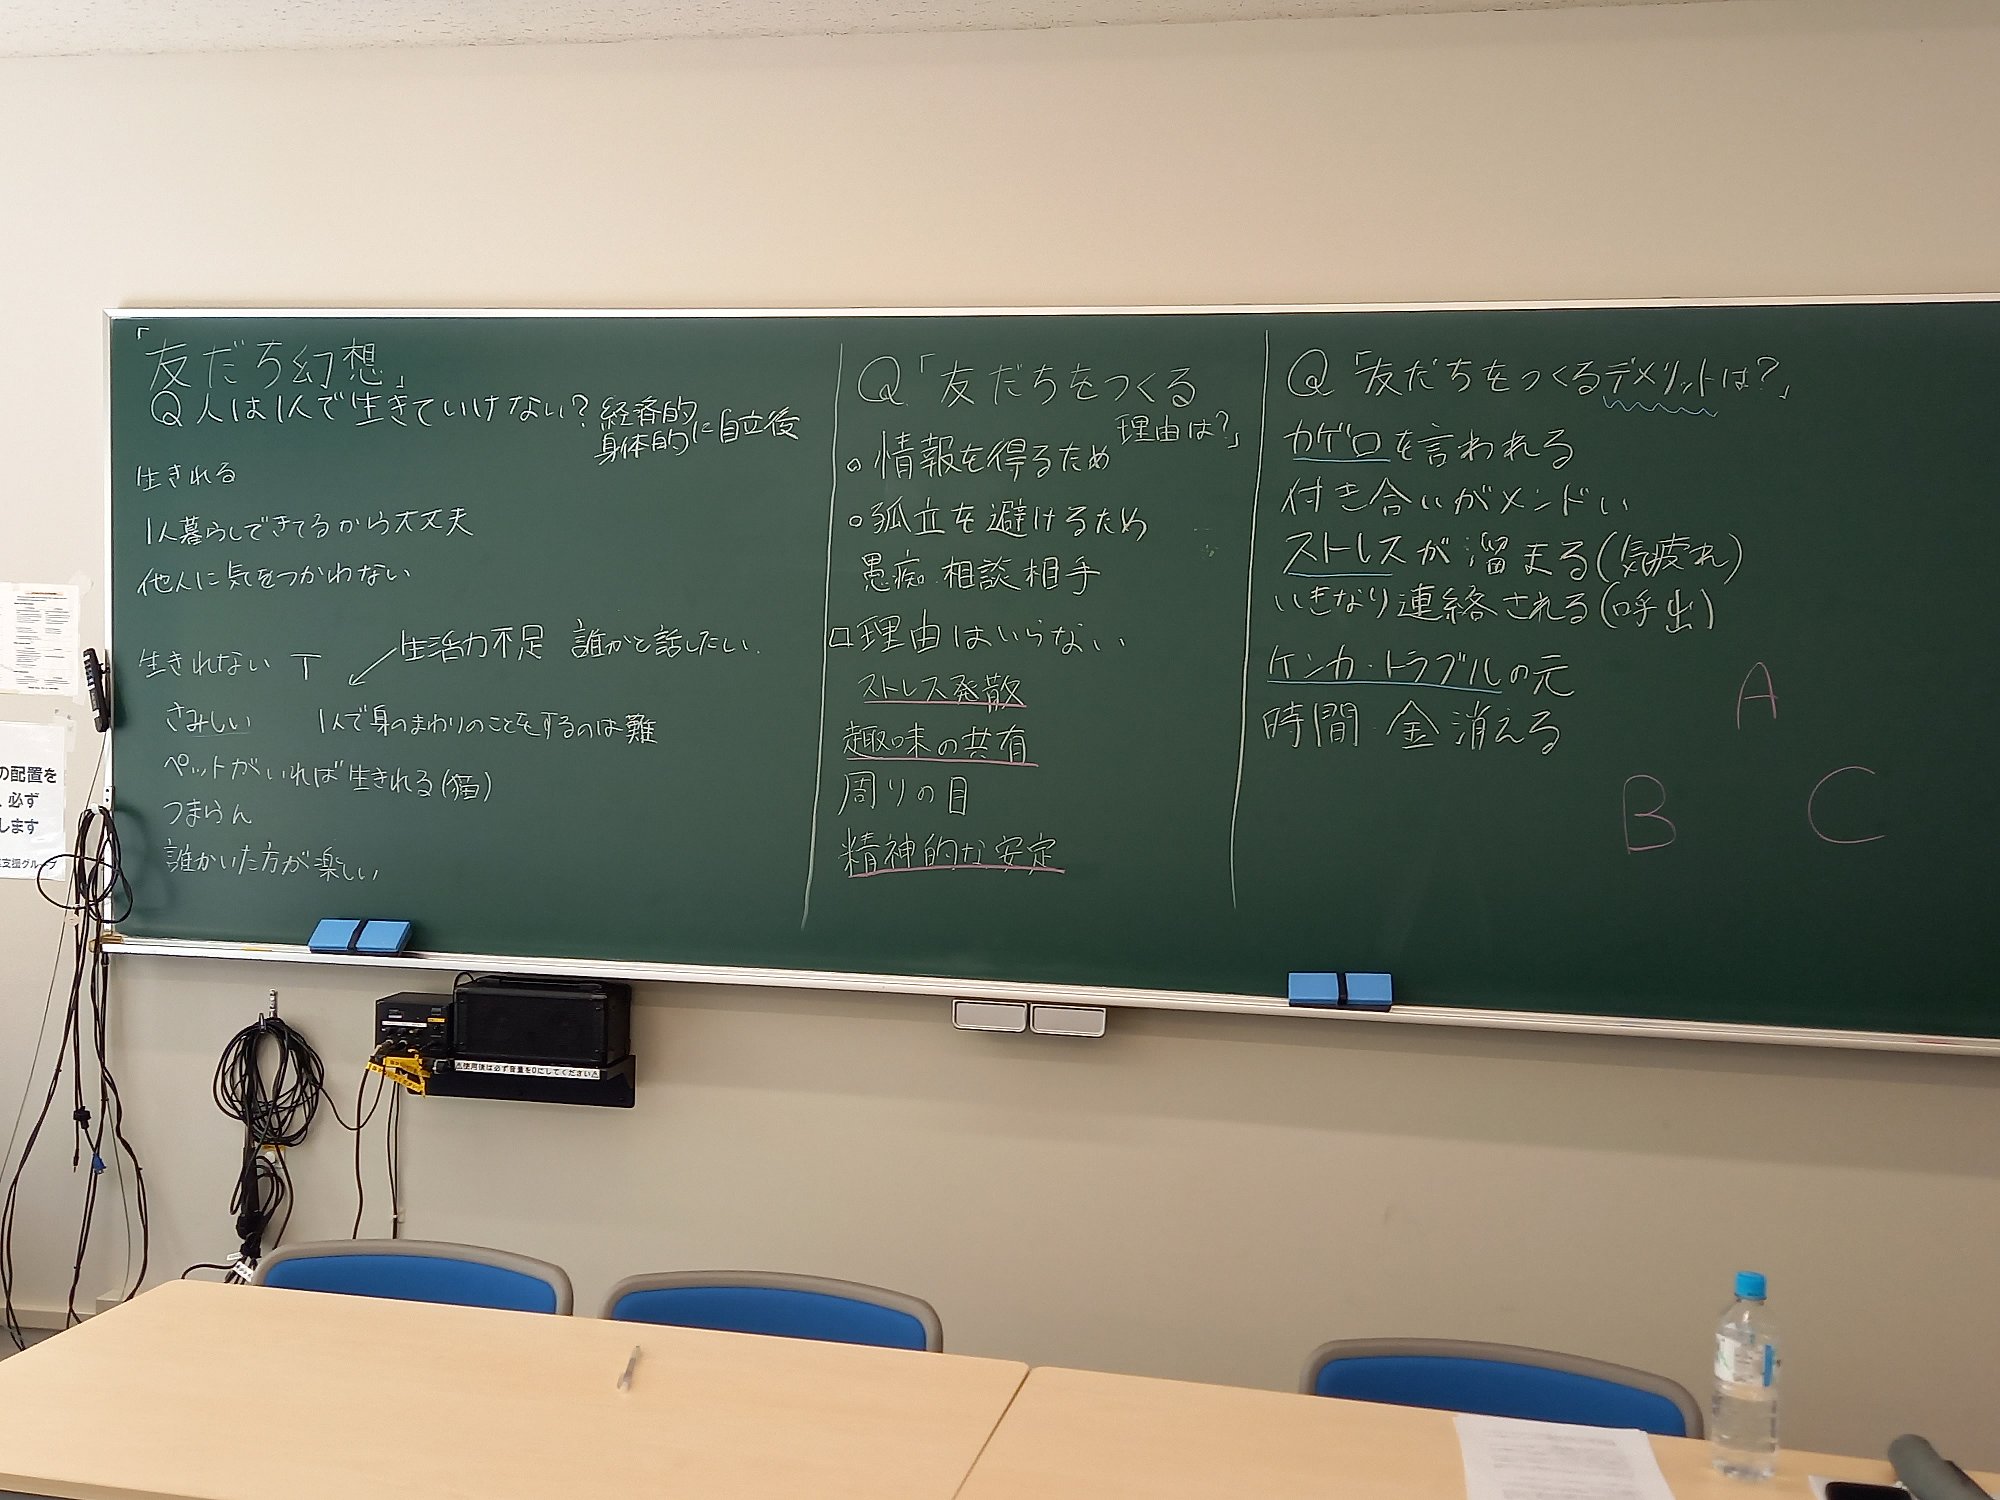 「友だち幻想」
Q 人は1人で生きていけない? 経済的
身体的に自立後
生きれる
1人暮らしできてるから大丈夫
他人に気をつかわない
生活力不足 誰かと話したい.
生きれない
さみしい 1人で身のまわりのことをするのは難
ペットがいれば生きれる(猫)
つまらん
誰かいた方が楽しい
Q「友だちをつくる
理由は?」
○情報を得るため
○孤立を避けるため
愚痴・相談相手
□理由はいらない
ストレス発散
趣味の共有
周りの目
精神的な安定
Q「友だちをつくるデメリットは?」
カゲ口を言われる
付き合いがメンドい
ストレスが溜まる(気疲れ)
いきなり連絡される(呼出)
ケンカ・トラブルの元
時間・金消える
A
B C
の配置を
必ず
します
支援グループ
⚠使用後は必ず音量を0にしてください⚠